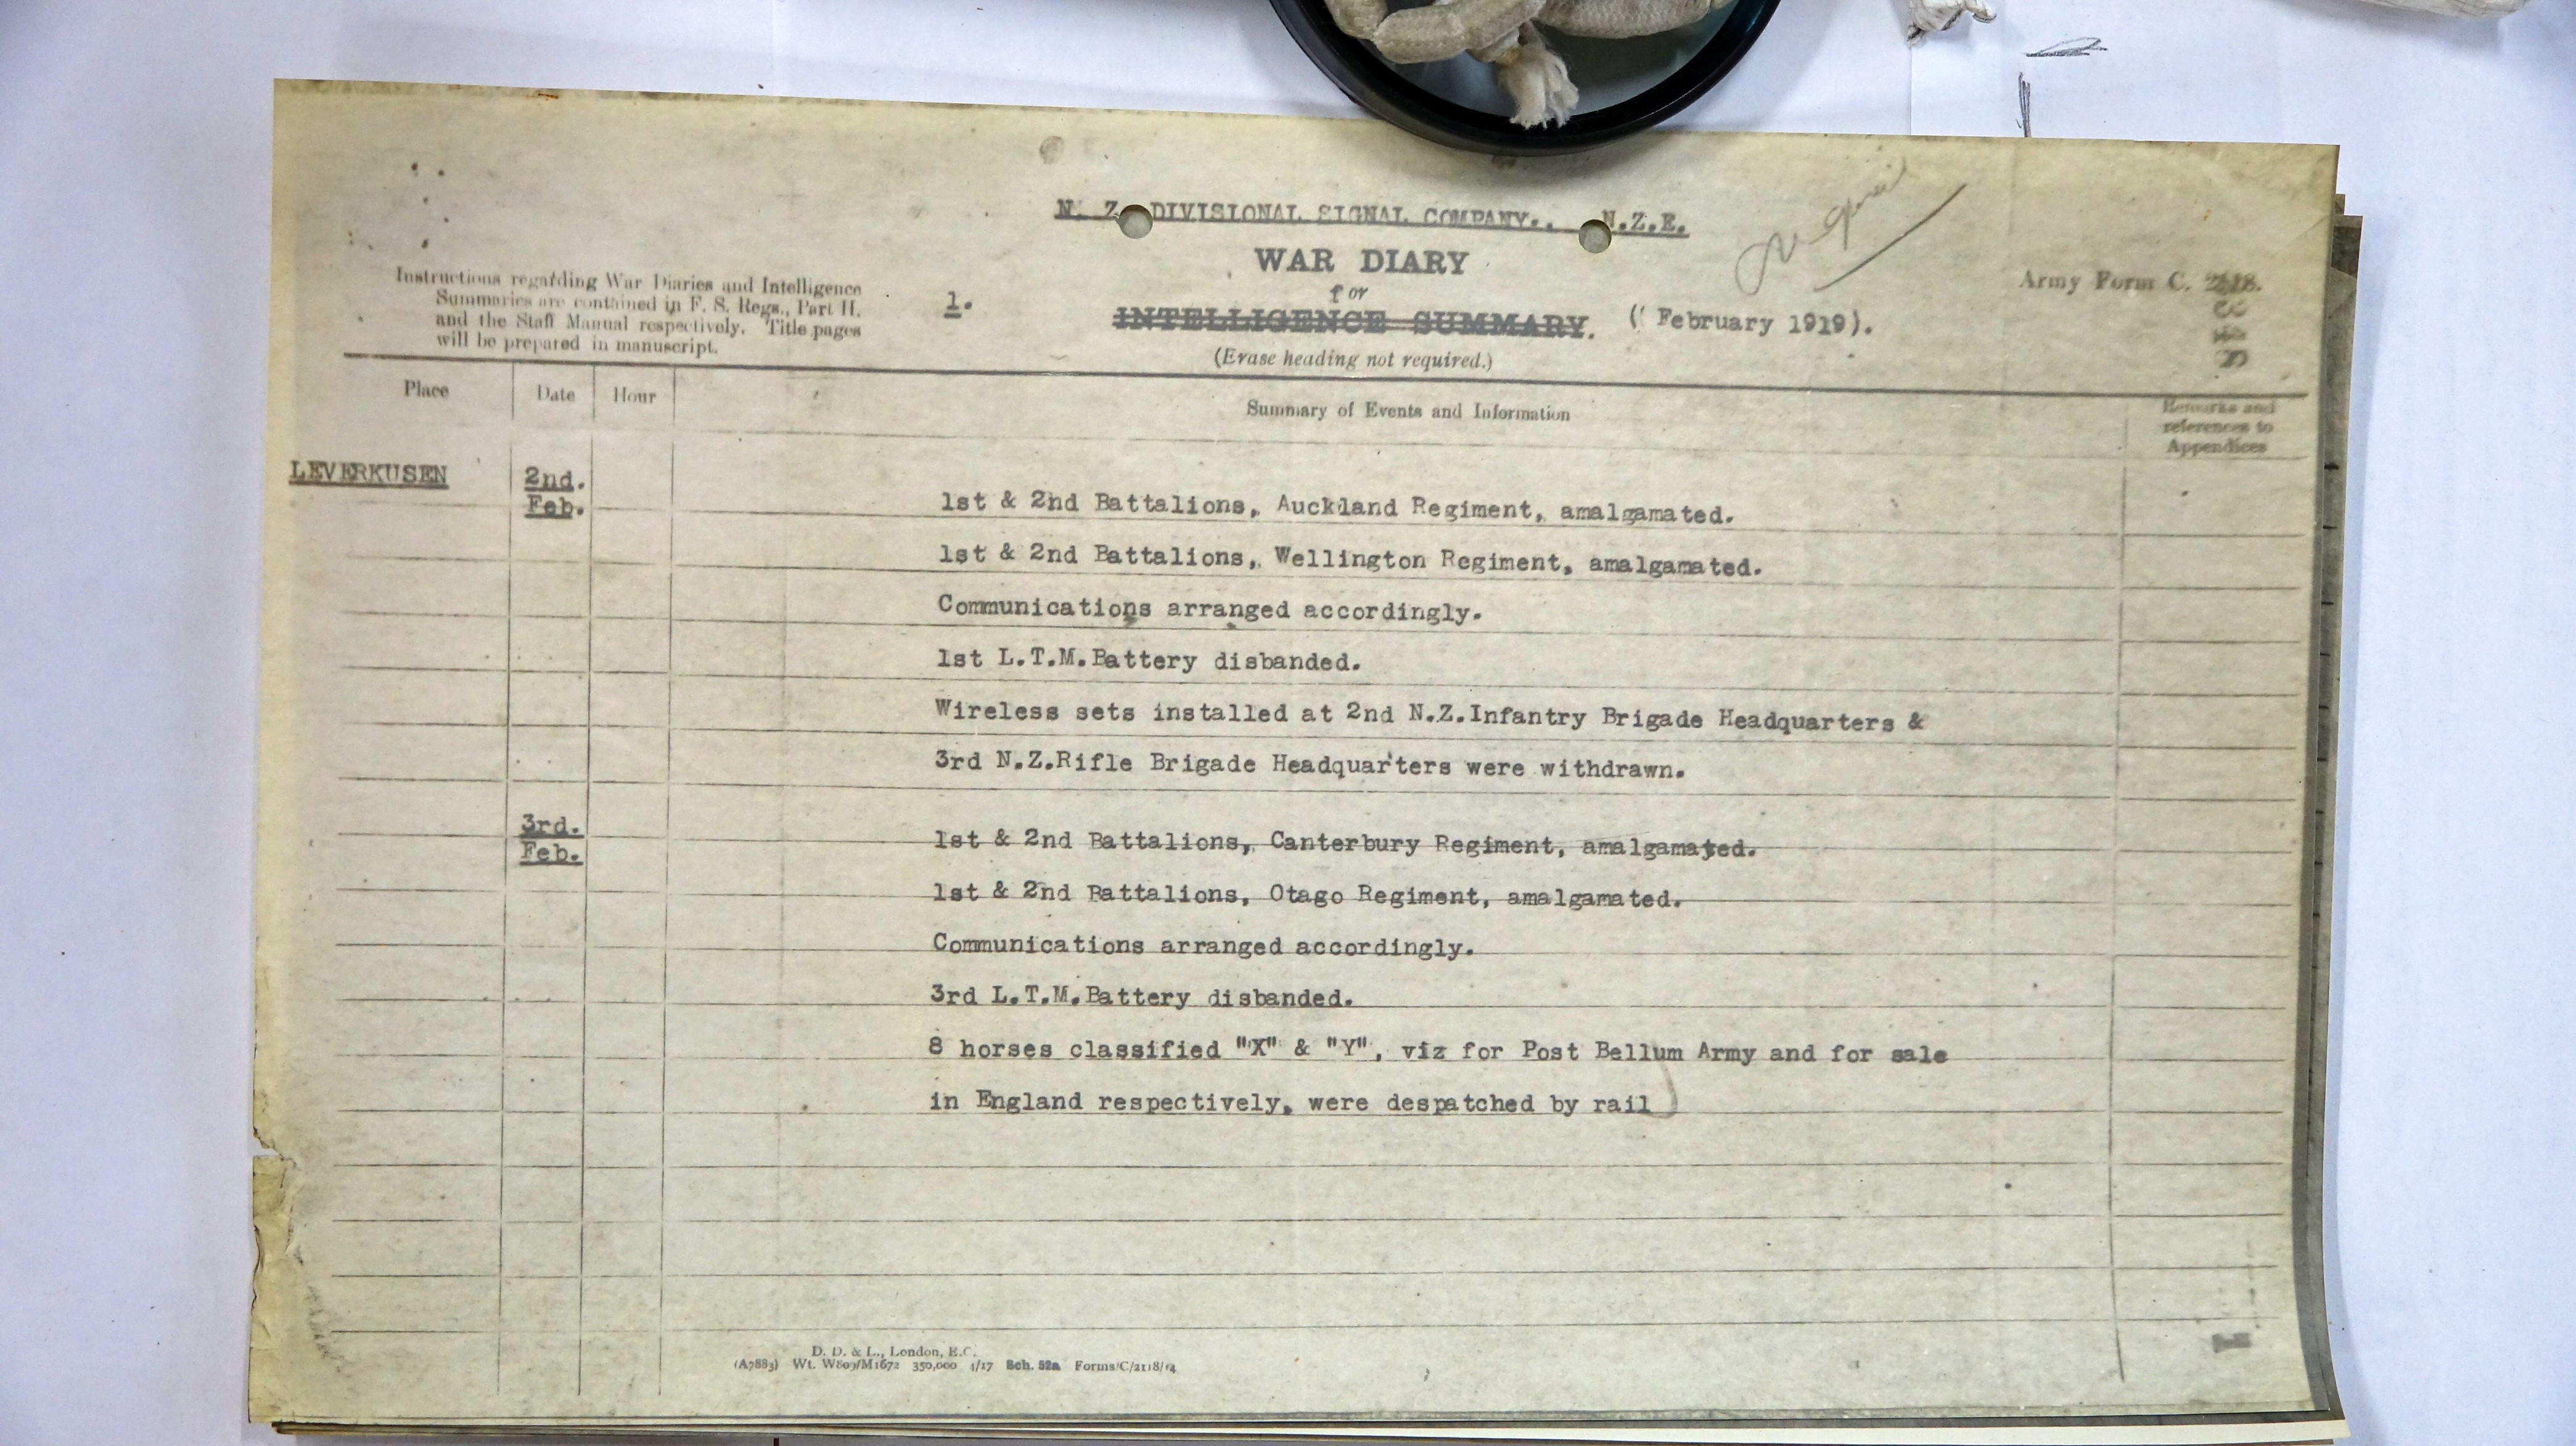 N. Z. DIVISIONAL SIGNAL COMPANY., N.Z.E.
WAR DIARY
for
INTELLIGENCE SUMMARY. ( February 1919).
(Erase heading not required.)
1.
Instructions regarding War Diaries and Intelligence
Summaries are contained in F. S. Regs., Part II.
and the Staff Manual respectively. Title pages
will be prepared in manuscript.
Army Form C. 2118.
Place Date Hour Summary of Events and Information
Remarks and
references to
Appendices
LEVERKUSEN 2nd.
Feb.
1st & 2nd Battalions, Auckland Regiment, amalgamated.
1st & 2nd Battalions, Wellington Regiment, amalgamated.
Communications arranged accordingly.
1st L.T.M.Battery disbanded.
Wireless sets installed at 2nd N.Z.Infantry Brigade Headquarters &
3rd N.Z.Rifle Brigade Headquarters were withdrawn.
3rd.
Feb.
1st & 2nd Battalions, Canterbury Regiment, amalgamated.
1st & 2nd Battalions, Otago Regiment, amalgamated.
Communications arranged accordingly.
3rd L.T.M.Battery disbanded.
8 horses classified "X" & "Y", viz for Post Bellum Army and for sale
in England respectively, were despatched by rail
D. D. & L., London, E.C.
(A7883) Wt. W809/M1672 350,000 4/17 Sch. 52a Forms/C/2118/14